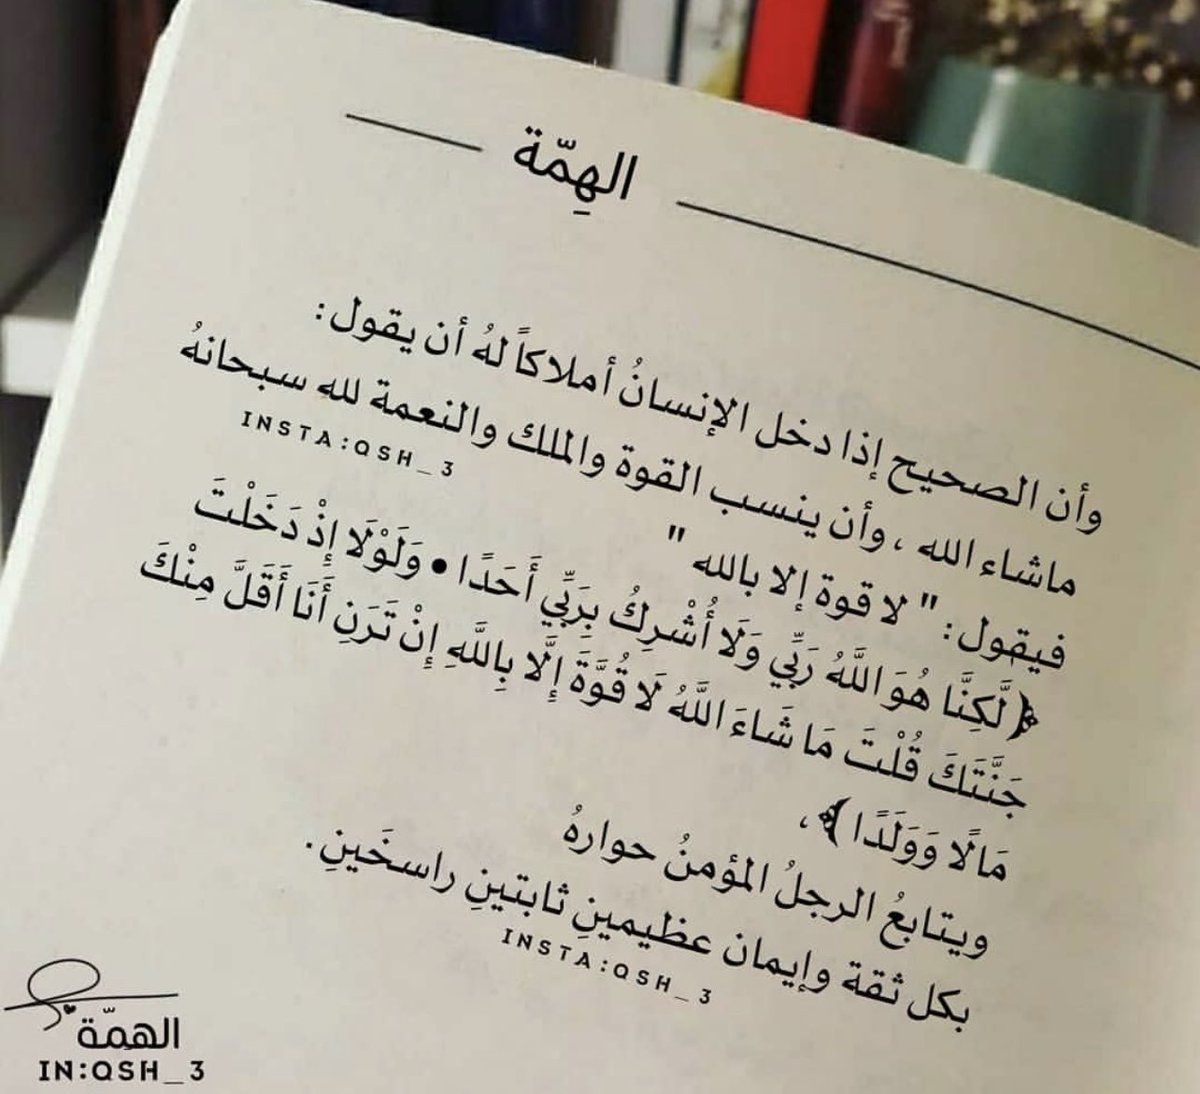 الهِمّة
وأن الصحيح إذا دخل الإنسانُ أملاكاً لهُ أن يقول:
ماشاء الله ، وأن ينسب القوة والملك والنعمة لله سبحانهُ
INSTA:QSH_3
فيقول: " لا قوة إلا بالله "
﴿لَّكِنَّا هُوَ اللَّهُ رَبِّي وَلَا أُشْرِكُ بِرَبِّي أَحَدًا • وَلَوْلَا إِذْ دَخَلْتَ
جَنَّتَكَ قُلْتَ مَا شَاءَ اللَّهُ لَا قُوَّةَ إِلَّا بِاللَّهِ إِنْ تَرَنِ أَنَا أَقَلَّ مِنْكَ
مَالًا وَوَلَدًا﴾،
ويتابعُ الرجلُ المؤمنُ حوارهُ
بكل ثقة وإيمان عظيمينِ ثابتينِ راسخَينِ.
INSTA:QSH_3
الهمّة
IN:QSH_3